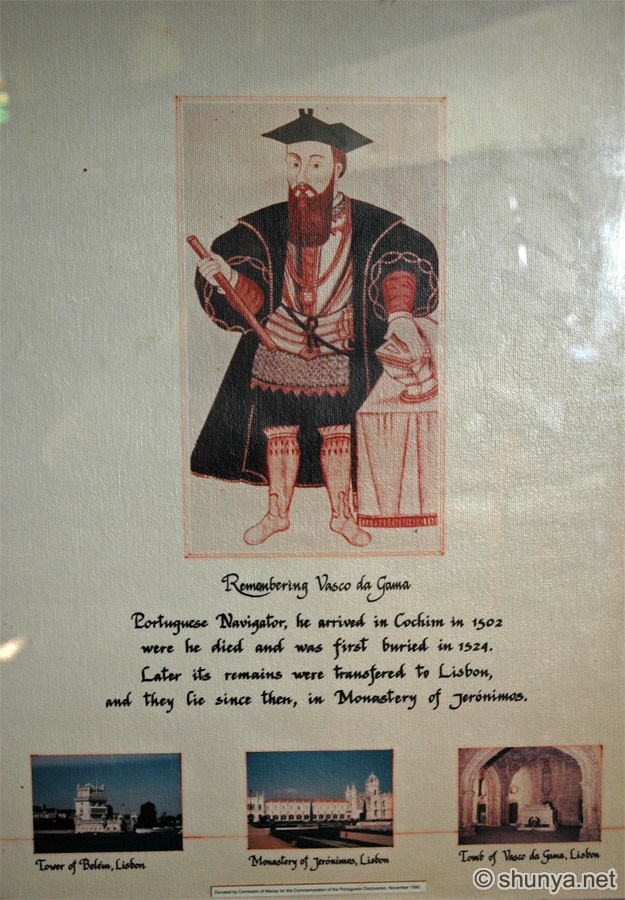 Remembering Vasco da Gama
Portuguese Navigator, he arrived in Cochim in 1502
were he died and was first buried in 1524.
Later its remains were transfered to Lisbon,
and they lie since then, in Monastery of Jerónimos.
Tower of Belém, Lisbon
Monastery of Jerónimos, Lisbon
Tomb of Vasco da Gama, Lisbon
Donated by Comission of Macau for the Commemoration of the Portuguese Discoveries, November 1990
© shunya.net